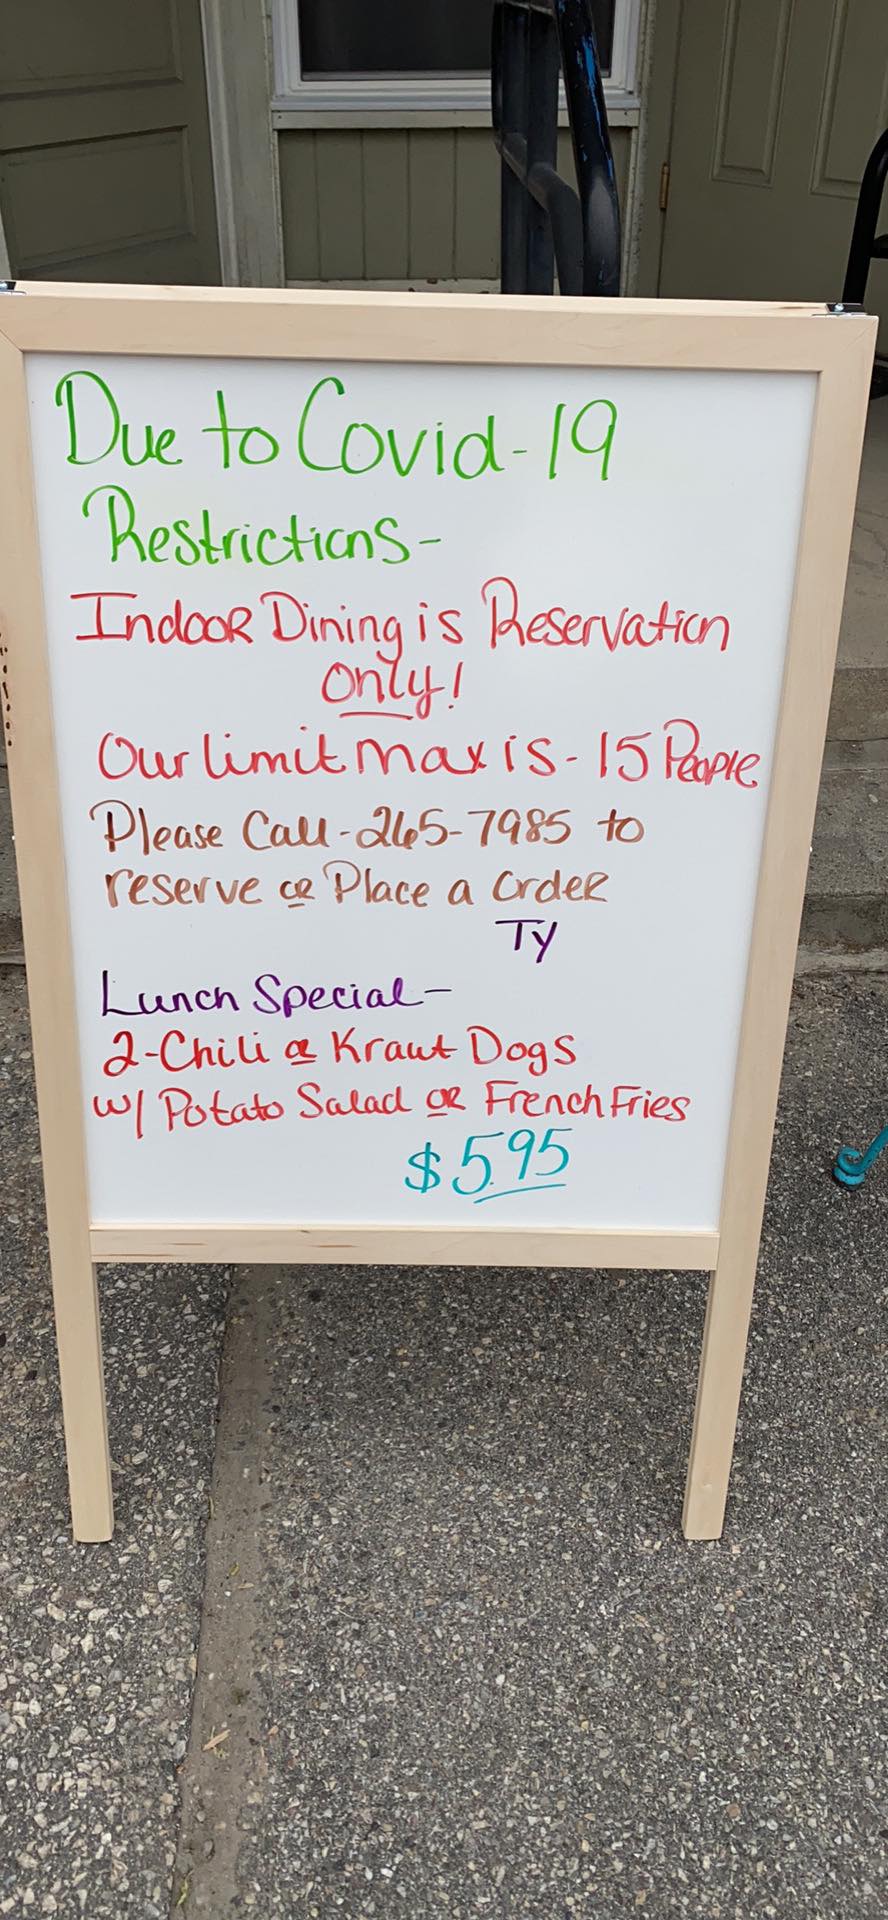 Due to Covid-19
Restrictions-
Indoor Dining is Reservation
Only!
Our limit max is - 15 People
Please Call - 265-7985 to
reserve or Place a Order
TY
Lunch Special-
2-Chili or Kraut Dogs
w/ Potato Salad or French Fries
$5.95